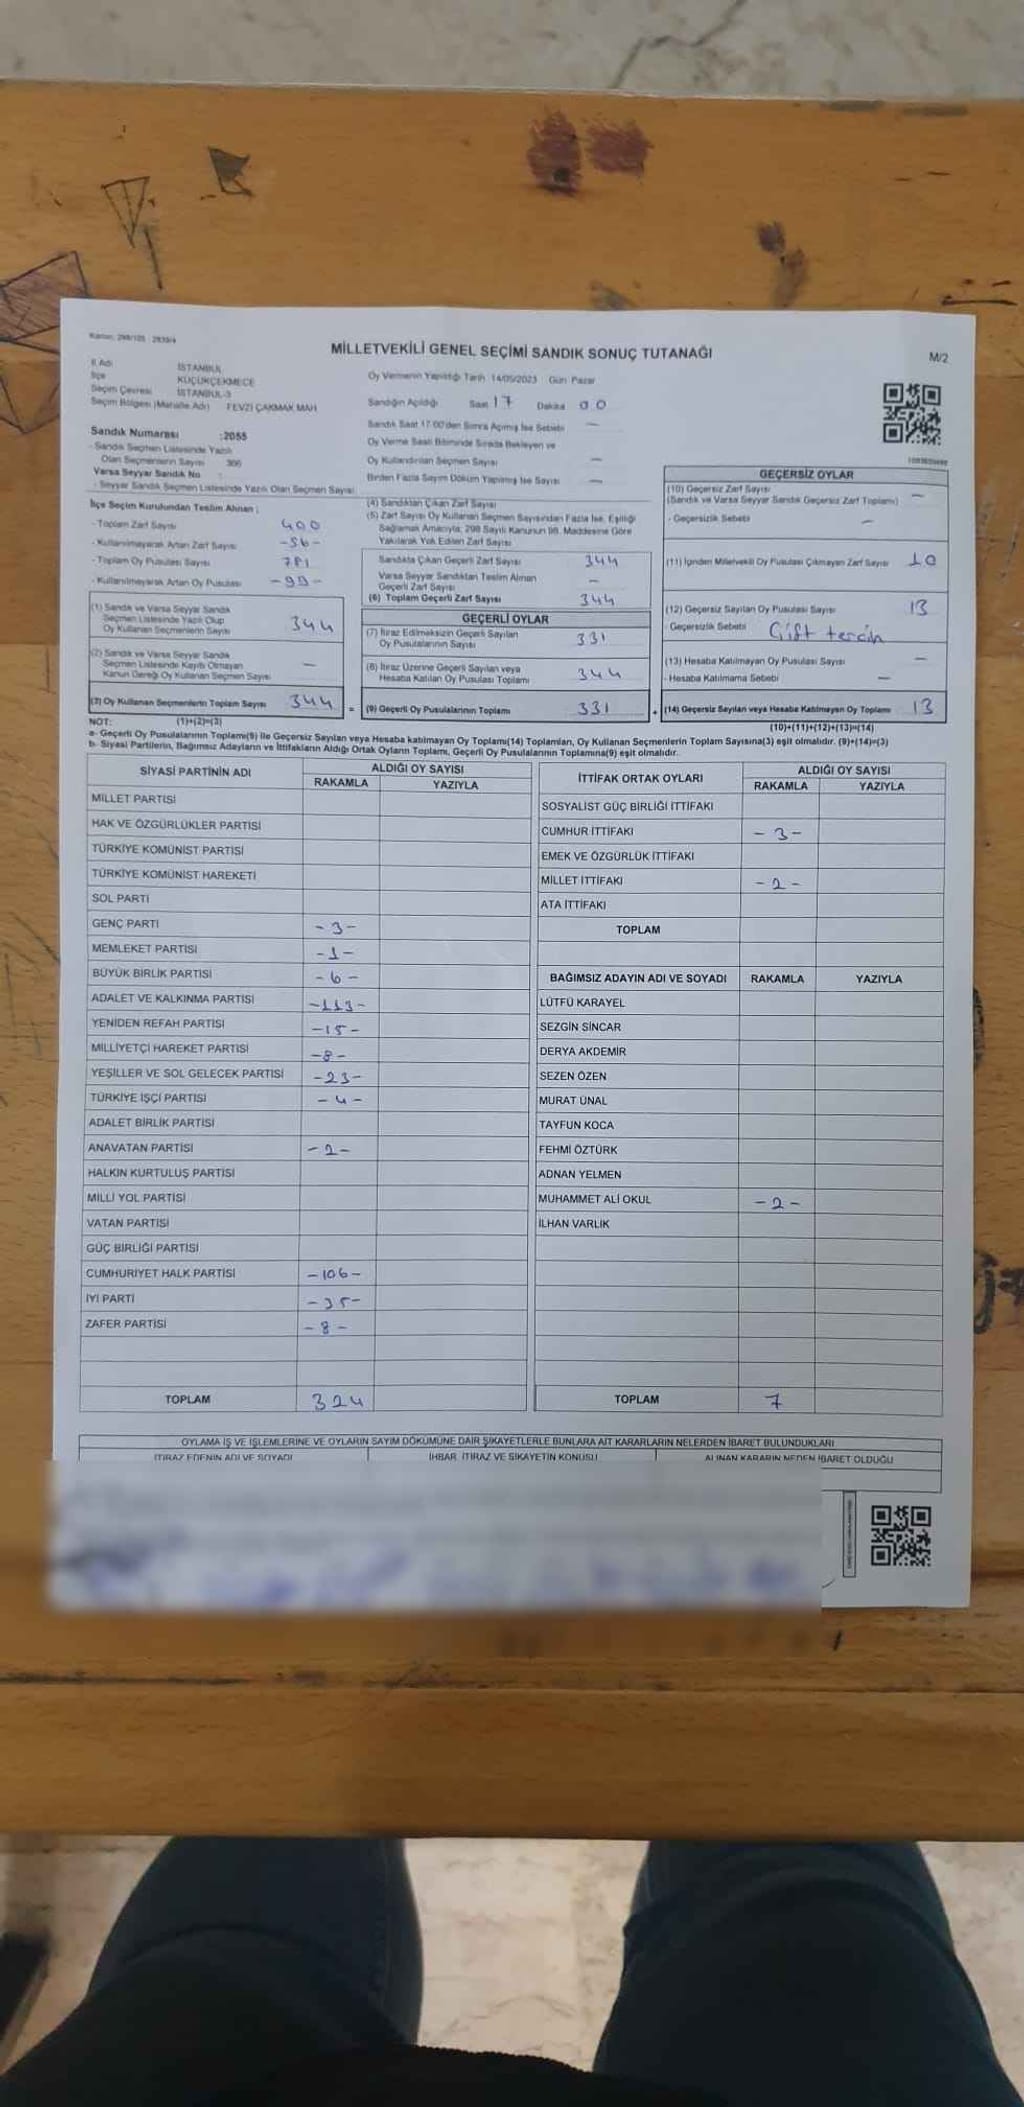 Kanun: 298/105 - 2839/4
MİLLETVEKİLİ GENEL SEÇİMİ SANDIK SONUÇ TUTANAĞI
M/2
İl Adı İSTANBUL
İlçe KÜÇÜKÇEKMECE
Seçim Çevresi İSTANBUL-3
Seçim Bölgesi (Mahalle Adı) FEVZİ ÇAKMAK MAH.
Sandık Numarası :2055
- Sandık Seçmen Listesinde Yazılı
Olan Seçmenlerin Sayısı 386
Varsa Seyyar Sandık No :
- Seyyar Sandık Seçmen Listesinde Yazılı Olan Seçmen Sayısı:
Oy Vermenin Yapıldığı Tarih 14/05/2023 Gün Pazar
Sandığın Açıldığı Saat 17 Dakika 00
Sandık Saat 17:00'den Sonra Açılmış İse Sebebi —
Oy Verme Saati Bitiminde Sırada Bekleyen ve
Oy Kullandırılan Seçmen Sayısı —
Birden Fazla Sayım Döküm Yapılmış İse Sayısı —
İlçe Seçim Kurulundan Teslim Alınan :
- Toplam Zarf Sayısı 400
- Kullanılmayarak Artan Zarf Sayısı -56-
- Toplam Oy Pusulası Sayısı
- Kullanılmayarak Artan Oy Pusulası -99-
(1) Sandık ve Varsa Seyyar Sandık
Seçmen Listesinde Yazılı Olup
Oy Kullanan Seçmenlerin Sayısı 344
(2) Sandık ve Varsa Seyyar Sandık
Seçmen Listesinde Kayıtlı Olmayan
Kanun Gereği Oy Kullanan Seçmen Sayısı —
(3) Oy Kullanan Seçmenlerin Toplam Sayısı 344 =
(4) Sandıktan Çıkan Zarf Sayısı
(5) Zarf Sayısı Oy Kullanan Seçmen Sayısından Fazla İse, Eşitliği
Sağlamak Amacıyla; 298 Sayılı Kanunun 98. Maddesine Göre
Yakılarak Yok Edilen Zarf Sayısı
Sandıkta Çıkan Geçerli Zarf Sayısı 344
Varsa Seyyar Sandıktan Teslim Alınan
Geçerli Zarf Sayısı —
(6) Toplam Geçerli Zarf Sayısı 344
GEÇERLİ OYLAR
(7) İtiraz Edilmeksizin Geçerli Sayılan
Oy Pusulalarının Sayısı 331
(8) İtiraz Üzerine Geçerli Sayılan veya
Hesaba Katılan Oy Pusulası Toplamı 344
(9) Geçerli Oy Pusulalarının Toplamı 331 +
GEÇERSİZ OYLAR
(10) Geçersiz Zarf Sayısı
(Sandık ve Varsa Seyyar Sandık Geçersiz Zarf Toplamı) —
- Geçersizlik Sebebi —
(11) İçinden Milletvekili Oy Pusulası Çıkmayan Zarf Sayısı 10
(12) Geçersiz Sayılan Oy Pusulası Sayısı 13
- Geçersizlik Sebebi Çift tercih
(13) Hesaba Katılmayan Oy Pusulası Sayısı —
- Hesaba Katılmama Sebebi —
(14) Geçersiz Sayılan veya Hesaba Katılmayan Oy Toplamı 13
NOT: (1)+(2)=(3) (10)+(11)+(12)+(13)=(14)
a- Geçerli Oy Pusulalarının Toplamı(9) ile Geçersiz Sayılan veya Hesaba katılmayan Oy Toplamı(14) Toplamları, Oy Kullanan Seçmenlerin Toplam Sayısına(3) eşit olmalıdır. (9)+(14)=(3)
b- Siyasi Partilerin, Bağımsız Adayların ve İttifakların Aldığı Ortak Oyların Toplamı, Geçerli Oy Pusulalarının Toplamına(9) eşit olmalıdır.
SİYASİ PARTİNİN ADI ALDIĞI OY SAYISI
RAKAMLA YAZIYLA
MİLLET PARTİSİ
HAK VE ÖZGÜRLÜKLER PARTİSİ
TÜRKİYE KOMÜNİST PARTİSİ
TÜRKİYE KOMÜNİST HAREKETİ
SOL PARTİ
GENÇ PARTİ -3-
MEMLEKET PARTİSİ -1-
BÜYÜK BİRLİK PARTİSİ -6-
ADALET VE KALKINMA PARTİSİ -113-
YENİDEN REFAH PARTİSİ -15-
MİLLİYETÇİ HAREKET PARTİSİ -8-
YEŞİLLER VE SOL GELECEK PARTİSİ -23-
TÜRKİYE İŞÇİ PARTİSİ -4-
ADALET BİRLİK PARTİSİ
ANAVATAN PARTİSİ -2-
HALKIN KURTULUŞ PARTİSİ
MİLLİ YOL PARTİSİ
VATAN PARTİSİ
GÜÇ BİRLİĞİ PARTİSİ
CUMHURİYET HALK PARTİSİ -106-
İYİ PARTİ -35-
ZAFER PARTİSİ -8-
TOPLAM 324
İTTİFAK ORTAK OYLARI ALDIĞI OY SAYISI
RAKAMLA YAZIYLA
SOSYALİST GÜÇ BİRLİĞİ İTTİFAKI
CUMHUR İTTİFAKI -3-
EMEK VE ÖZGÜRLÜK İTTİFAKI
MİLLET İTTİFAKI -2-
ATA İTTİFAKI
TOPLAM
BAĞIMSIZ ADAYIN ADI VE SOYADI RAKAMLA YAZIYLA
LÜTFÜ KARAYEL
SEZGİN SİNCAR
DERYA AKDEMİR
SEZEN ÖZEN
MURAT ÜNAL
TAYFUN KOCA
FEHMİ ÖZTÜRK
ADNAN YELMEN
MUHAMMET ALİ OKUL -2-
İLHAN VARLIK
TOPLAM 7
OYLAMA İŞ VE İŞLEMLERİNE VE OYLARIN SAYIM DÖKÜMÜNE DAİR ŞİKAYETLERLE BUNLARA AİT KARARLARIN NELERDEN İBARET BULUNDUKLARI
İTİRAZ EDENİN ADI VE SOYADI İHBAR, İTİRAZ VE ŞİKAYETİN KONUSU ALINAN KARARIN NEDEN İBARET OLDUĞU